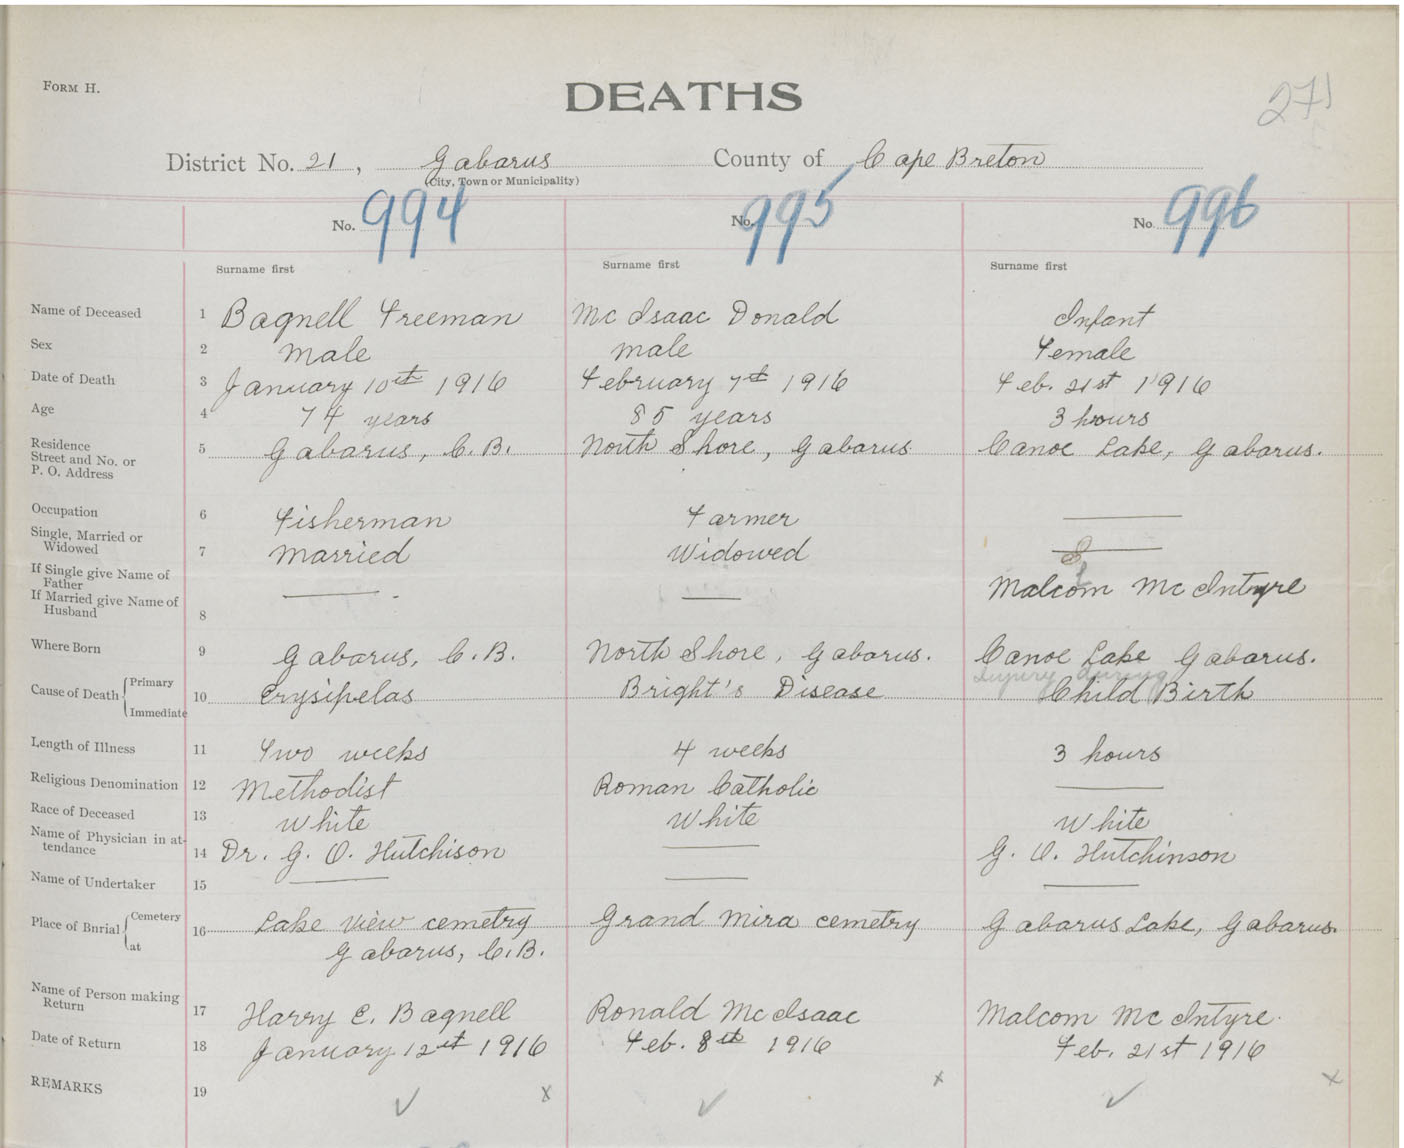 FORM H.
DEATHS
271
District No. 21, Gabarus County of Cape Breton
(City, Town or Municipality)
No. 994 No. 995 No. 996
Surname first Surname first Surname first
Name of Deceased 1 Bagnell Freeman Mc Isaac Donald Infant
Sex 2 Male male Female
Date of Death 3 January 10th 1916 February 7th 1916 Feb. 21st 1916
Age 4 74 years 85 years 3 hours
Residence
Street and No. or 5 Gabarus, C.B. North Shore, Gabarus. Canoe Lake, Gabarus.
P. O. Address
Occupation 6 Fisherman Farmer
Single, Married or
Widowed 7 Married Widowed S
If Single give Name of
Father Malcom Mc Intyre
If Married give Name of
Husband 8
Where Born 9 Gabarus, C.B. North Shore, Gabarus. Canoe Lake Gabarus.
Primary Injury during
Cause of Death 10 Erysipelas Bright's Disease Child Birth
Immediate
Length of Illness 11 Two weeks 4 weeks 3 hours
Religious Denomination 12 Methodist Roman Catholic
Race of Deceased 13 White White White
Name of Physician in at-
tendance 14 Dr. G. O. Hutchison G. O. Hutchinson
Name of Undertaker 15
Cemetery
Place of Burial 16 Lake View cemetry Grand Mira cemetry Gabarus Lake, Gabarus.
at Gabarus, C.B.
Name of Person making
Return 17 Harry E. Bagnell Ronald Mc Isaac Malcom Mc Intyre.
Date of Return 18 January 12th 1916 Feb. 8th 1916 Feb. 21st 1916
REMARKS 19 x x x